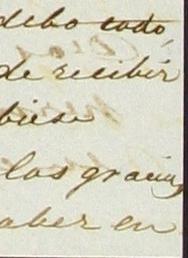 debo todo,
de recibir
biese
las gracias
aber en